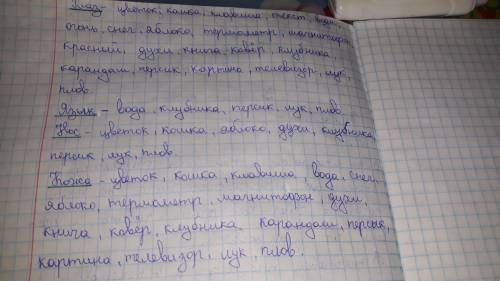 Глаз - цветок, кошка, клавиша, текст, вода,
огонь, снег, яблоко, термометр, магнитофон,
красный, духи, книга, ковёр, клубника,
карандаш, персик, картина, телевизор, лук,
плов.
Язык - вода, клубника, персик, лук, плов
Нос - цветок, кошка, яблоко, духи, клубника,
персик, лук, плов.
Кожа - цветок, кошка, клавиша, вода, снег,
яблоко, термометр, магнитофон, духи,
книга, ковёр, клубника карандаш, персик,
картина, телевизор, лук, плов.